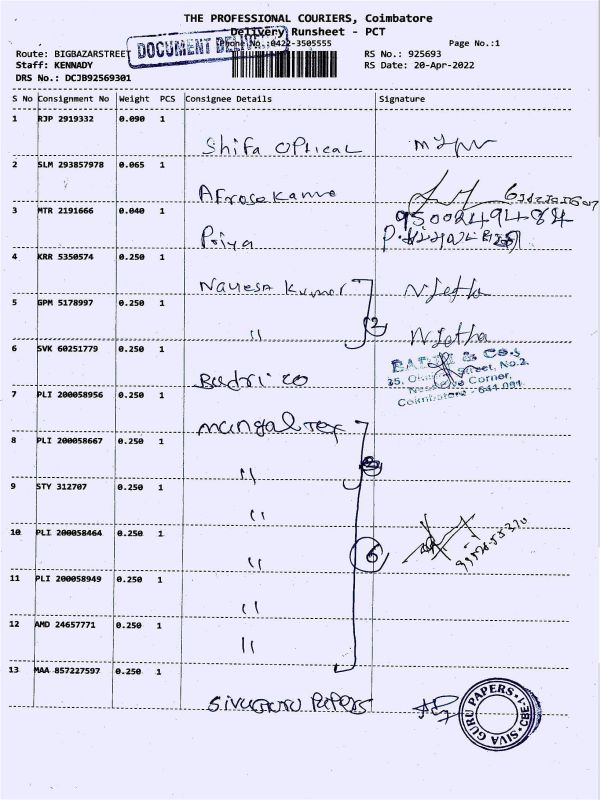 THE PROFESSIONAL COURIERS, Coimbatore
Delivery Runsheet - PCT
DOCUMENT
Phone No.:0422-3505555
Page No.:1
Route: BIGBAZARSTREET
RS No.: 925693
Staff: KENNADY
RS Date: 20-Apr-2022
DRS No.: DCJB92569301
S No Consignment No Weight PCS Consignee Details Signature
1 RJP 2919332 0.090 1
Shifa Optical
2 SLM 293857978 0.065 1
3 MTR 2191666 0.040 1
9500249484
Priya
4 KRR 5350574 0.250 1
Nayesh Kumar N Jetha
5 GPM 5178997 0.250 1
" N Jetha
2
6 SVK 60251779 0.250 1
& Co.,
Street, No.2,
Corner,
Coimbatore - 641 001
Badri co
7 PLI 200058956 0.250 1
mangal Tex
8 PLI 200058667 0.250 1
"
9 STY 312707 0.250 1
"
10 PLI 200058464 0.250 1
"
6
11 PLI 200058949 0.250 1
"
12 AMD 24657771 0.250 1
"
13 MAA 857227597 0.250 1
Sivaguru Papers
SIVA GURU PAPERS CBE-1